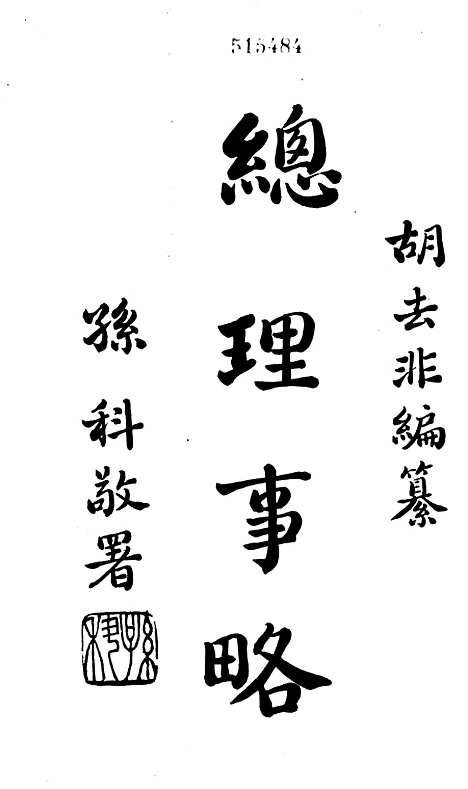 515484
胡去非編纂
總理事略
孫科敬署
孫科